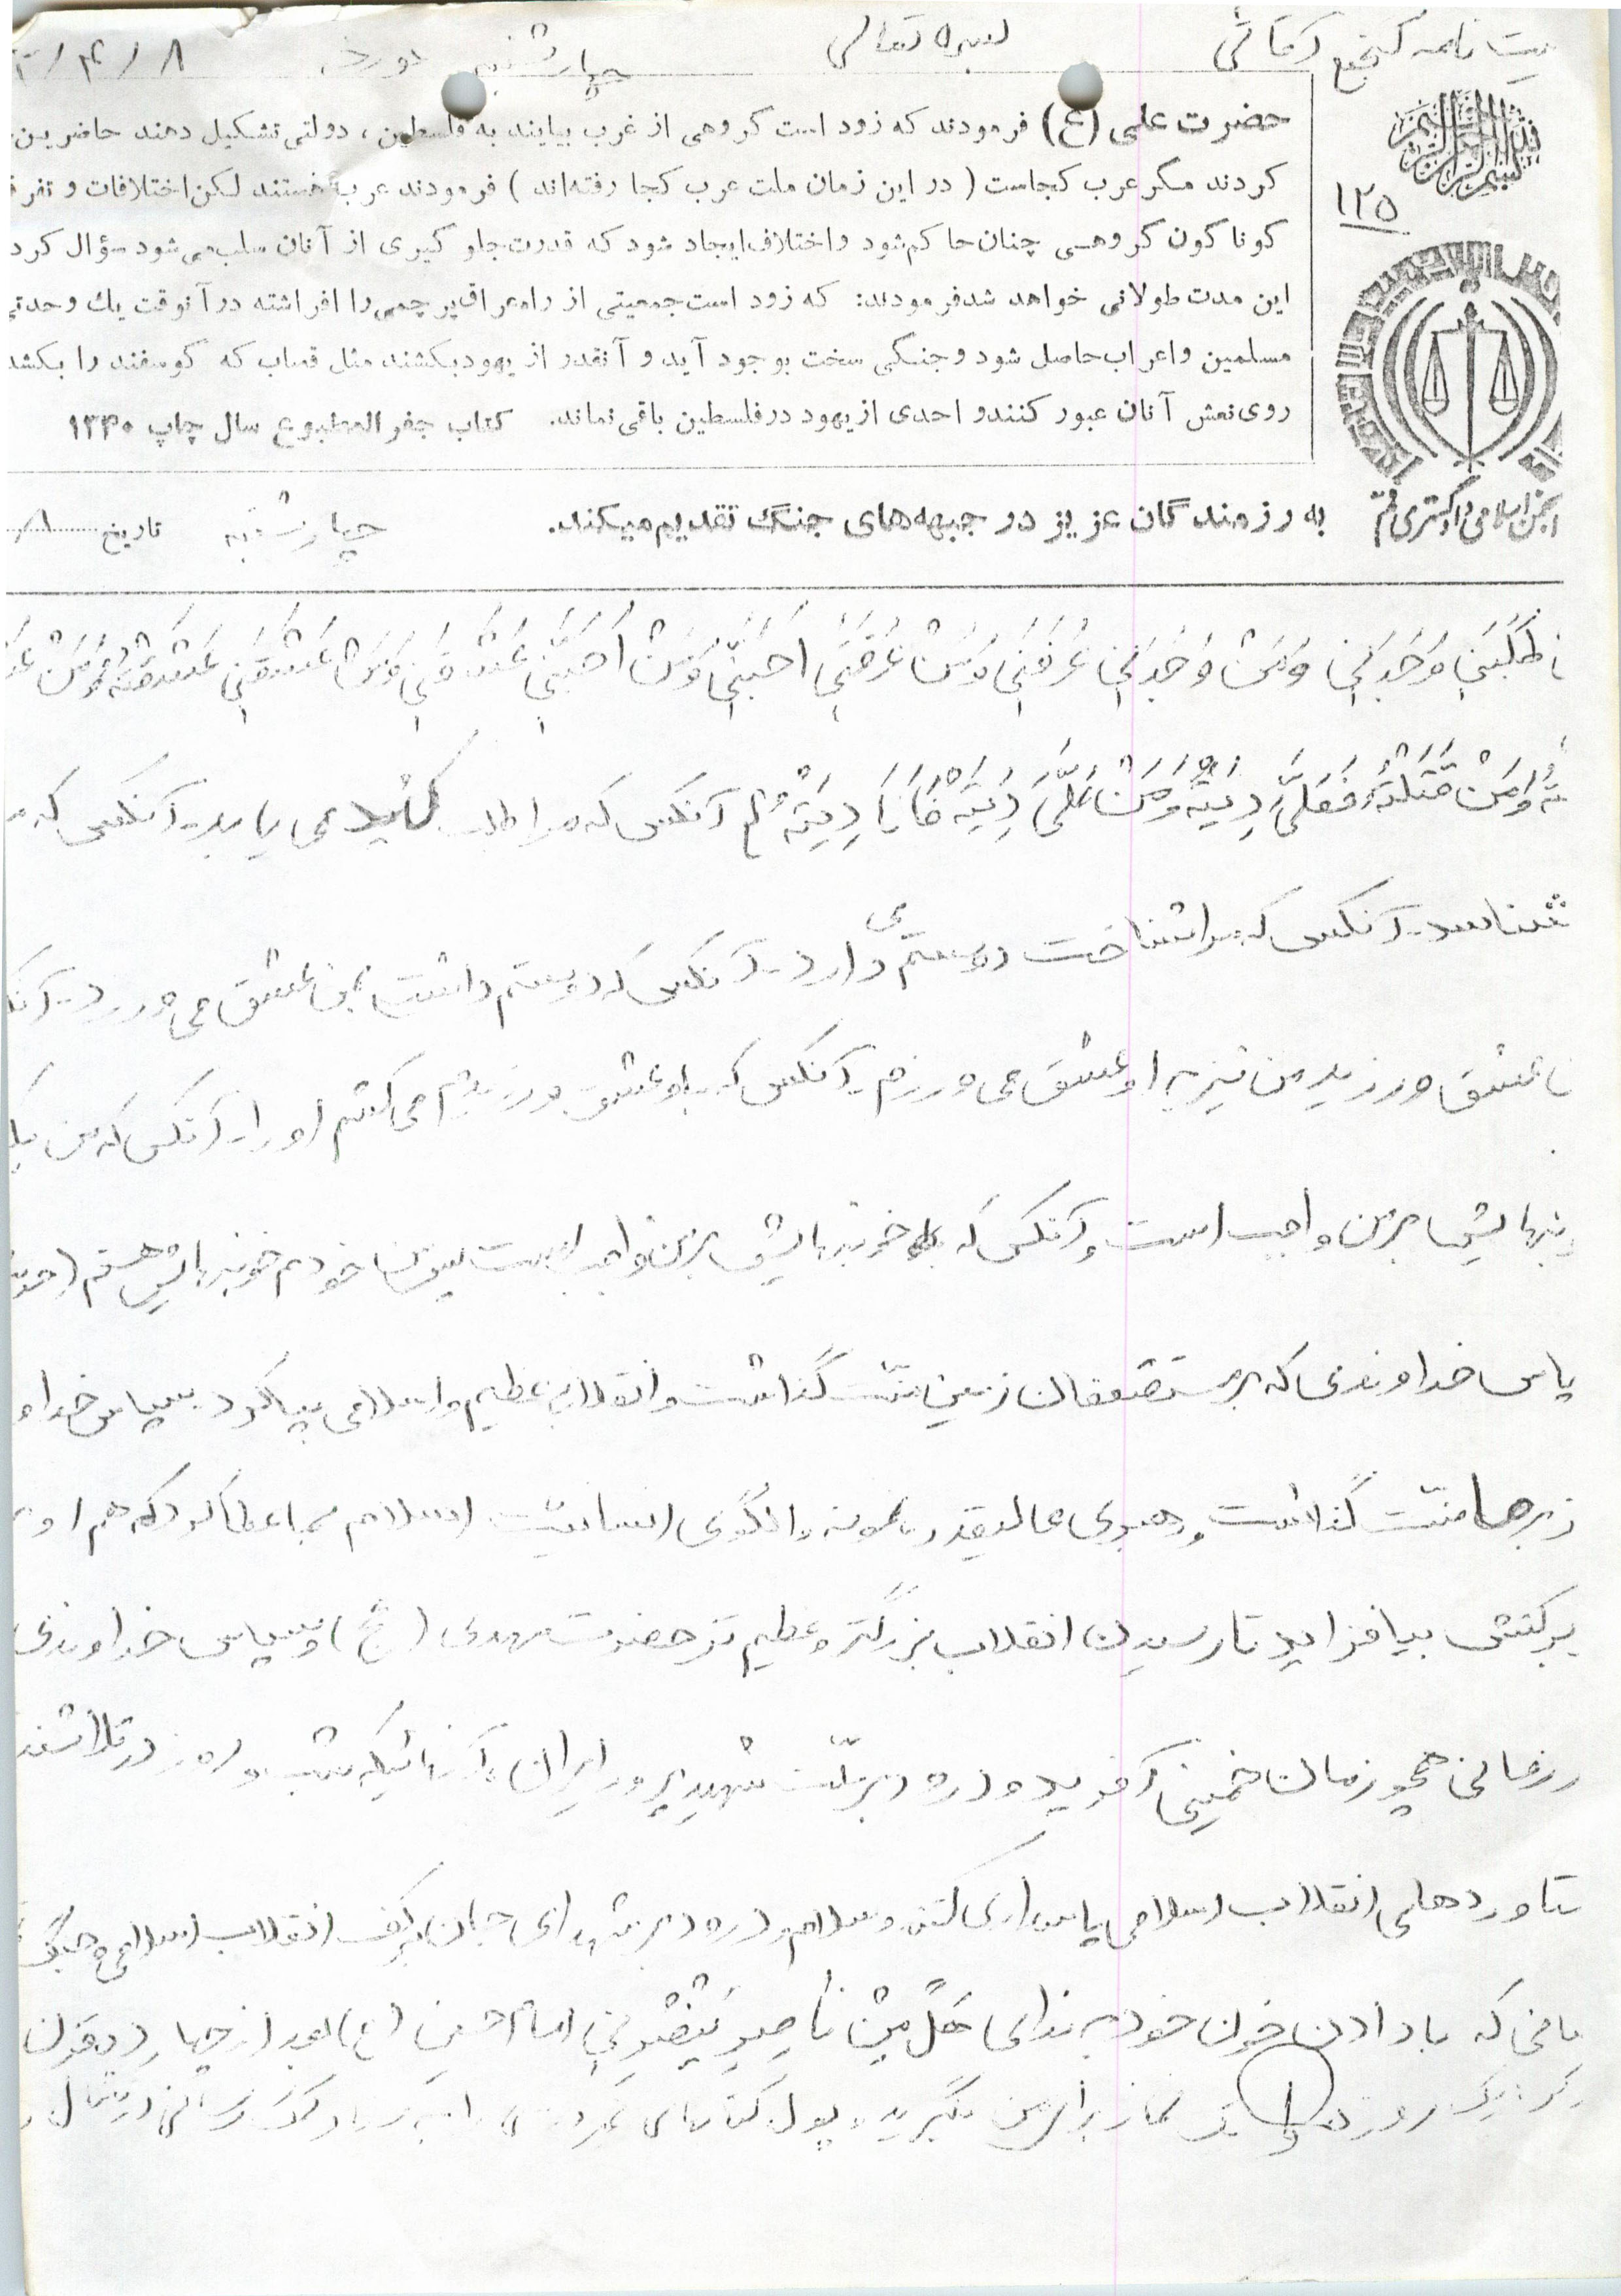 بسمه تعالی
چهارشنبه مورخ ۸ / ۴ /
حضرت علی (ع) فرمودند که زود است گروهی از غرب بیایند به فلسطین، دولتی تشکیل دهند حاضرین
کردند مگر عرب کجاست (در این زمان ملت عرب کجا رفته‌اند) فرمودند عرب هستند لکن اختلافات و تفر
۱۲۵
گوناگون گروهی چنان حاکم شود و اختلاف ایجاد شود که قدرت جلوگیری از آنان سلب می شود سؤال کرد
این مدت طولانی خواهد شد فرمودند: که زود است جمعیتی از راه عراق پرچمی را افراشته در آنوقت یك وحدتی
مسلمین و اعراب حاصل شود و جنگی سخت بوجود آید و آنقدر از یهود بکشند مثل قصاب که گوسفند را بکشد
روی نعش آنان عبور کنند و احدی از یهود در فلسطین باقی نماند. کتاب جفر المطبوع سال چاپ ۱۳۴۰
انجمن اسلامی دادگستری قم
به رزمندگان عزیز در جبهه‌های جنگ تقدیم میکند.
چهارشنبه تاریخ ۸/
طَلَبَنی وَجَدَنی وَمَنْ وَجَدَنی عَرَفَنی وَمَنْ عَرَفَنی اَحَبَّنی وَمَنْ اَحَبَّنی عَشَقَنی وَمَنْ عَشَقَنی عَشَقْتُهُ وَمَنْ
تُهُ وَمَنْ قَتَلْتُهُ فَعَلَیَّ دِیَتُهُ وَمَنْ عَلَیَّ دِیَتُهُ فَاَنَا دِیَتُهُ آنکس که مرا طلب کند می یابد آنکس که
شناسد آنکس که مرا شناخت دوستم می دارد آنکس که دوستم داشت بمن عشق می ورزد
عشق ورزید من نیز به او عشق می ورزم آنکس که باو عشق ورزیدم می کشم او را آنکس که من
نبهایش بر من واجب است و آنکس که خونبهایش بر من واجب است پس من خودم خونبهایش هستم
پاس خداوندی که بر مستضعفان زمین منت گذاشت و انقلابی عظیم و اسلامی بپا کرد سپاس خداو
بر ما منت گذاشت و رهبری عالیقدر نمونه و الگوی انسانیت اسلام بما عطا کرد که هم او
برکتش بیافزاید تا رسیدن انقلاب بزرگتر و عظیم تر حضرت مهدی (عج) و سپاس خداوندی
زمانی همچو زمان خمینی آفرید و درود بر ملت شهید پرور ایران آنهائیکه شب و روز در تلاشند
ستاوردهای انقلاب اسلامی پاسداری کنند و سلام و درود بر شهدای جان بر کف انقلاب اسلامی و جنگ
که با دادن خون خود به ندای هَل مِنْ ناصِرٍ یَنْصُرُنی امام حسین (ع) بعد از چهارده قرن
روزه نماز برایم بگیرید و پول کتابهای